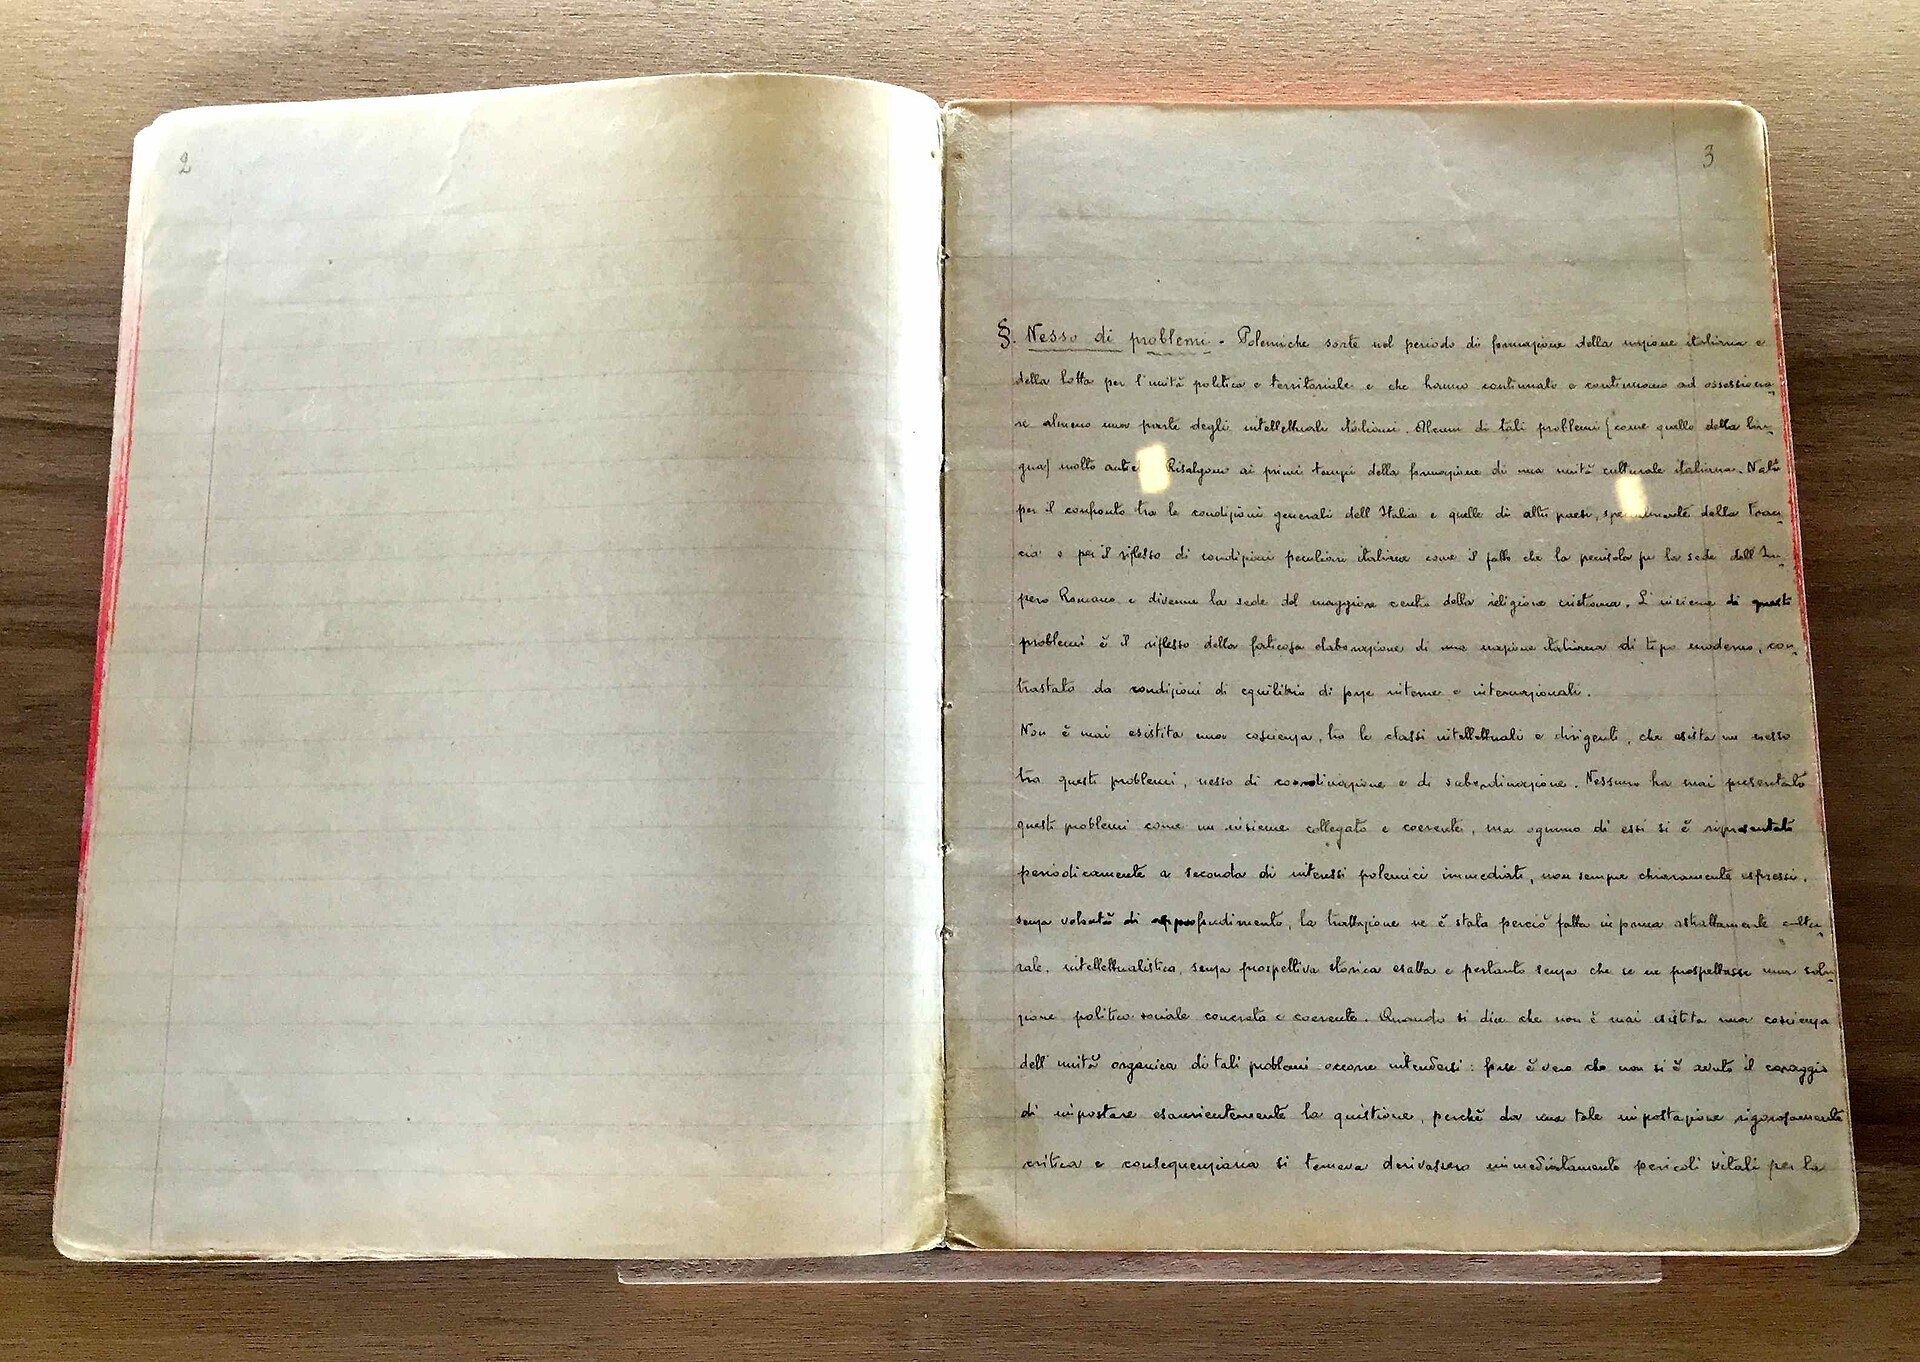 2
3
§. Nesso di problemi - Polemiche sorte nel periodo di formazione della nazione italiana e
della lotta per l'unità politica e territoriale e che hanno continuato e continuano ad ossessiona-
re almeno una parte degli intellettuali italiani. Alcuni di tali problemi (come quello della lin-
gua) molto antichi. Risalgono ai primi tempi della formazione di una unità culturale italiana. Nati
per il confronto tra le condizioni generali dell'Italia e quelle di altri paesi, specialmente della Fran-
cia o per il riflesso di condizioni peculiari italiane come il fatto che la penisola fu la sede dell'Im-
pero Romano e divenne la sede del maggiore centro della religione cristiana. L'insieme di questi
problemi è il riflesso della faticosa elaborazione di una nazione italiana di tipo moderno, con-
trastata da condizioni di equilibrio di forze interne e internazionali.
Non è mai esistita una coscienza, tra le classi intellettuali e dirigenti, che esista un nesso
tra questi problemi, nesso di coordinazione e di subordinazione. Nessuno ha mai presentato
questi problemi come un insieme collegato e coerente, ma ognuno di essi si è ripresentato
periodicamente a seconda di interessi polemici immediati, non sempre chiaramente espressi,
senza volontà di approfondimento, la trattazione ne è stata perciò fatta in forma astrattamente cultu-
rale, intellettualistica, senza prospettiva storica esatta e pertanto senza che se ne prospettasse una solu-
zione politico-sociale concreta e coerente. Quando si dice che non è mai esistita una coscienza
dell'unità organica di tali problemi occorre intendersi: forse è vero che non si è avuto il coraggio
di impostare esaurientemente la quistione, perché da una tale impostazione rigorosamente
critica e consequenziaria si temeva derivassero immediatamente pericoli vitali per la